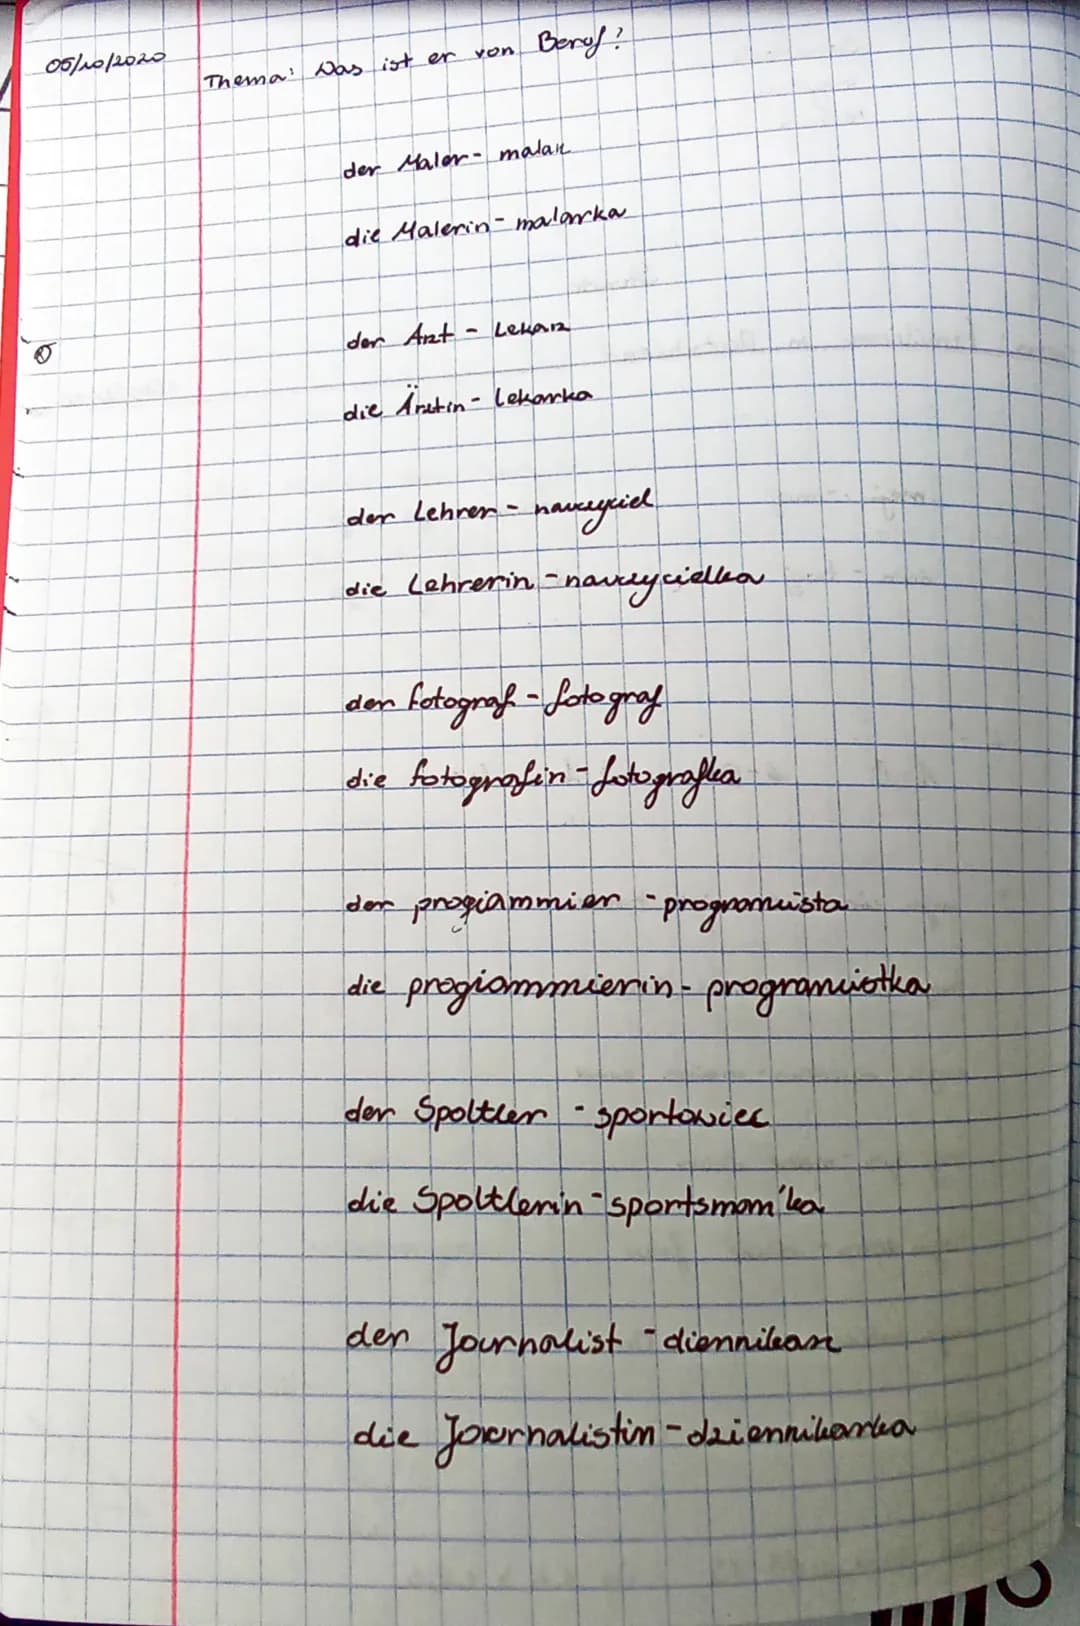 05/10/2020
Thema: Was ist er von Beruf?
der Maler - malarz
die Malerin - malarka
der Arzt - Lekarz
die Ärztin - lekarka
der Lehrer - nauczyciel
die Lehrerin - nauczycielka
der fotograf - fotograf
die fotografin - fotografka
der progiammier - programista
die progiammierin - programistka
der Spoltler - sportowiec
die Spoltlerin - sportsmom'ka
der Journalist - diennikarz
die Journalistin - dziennikarka